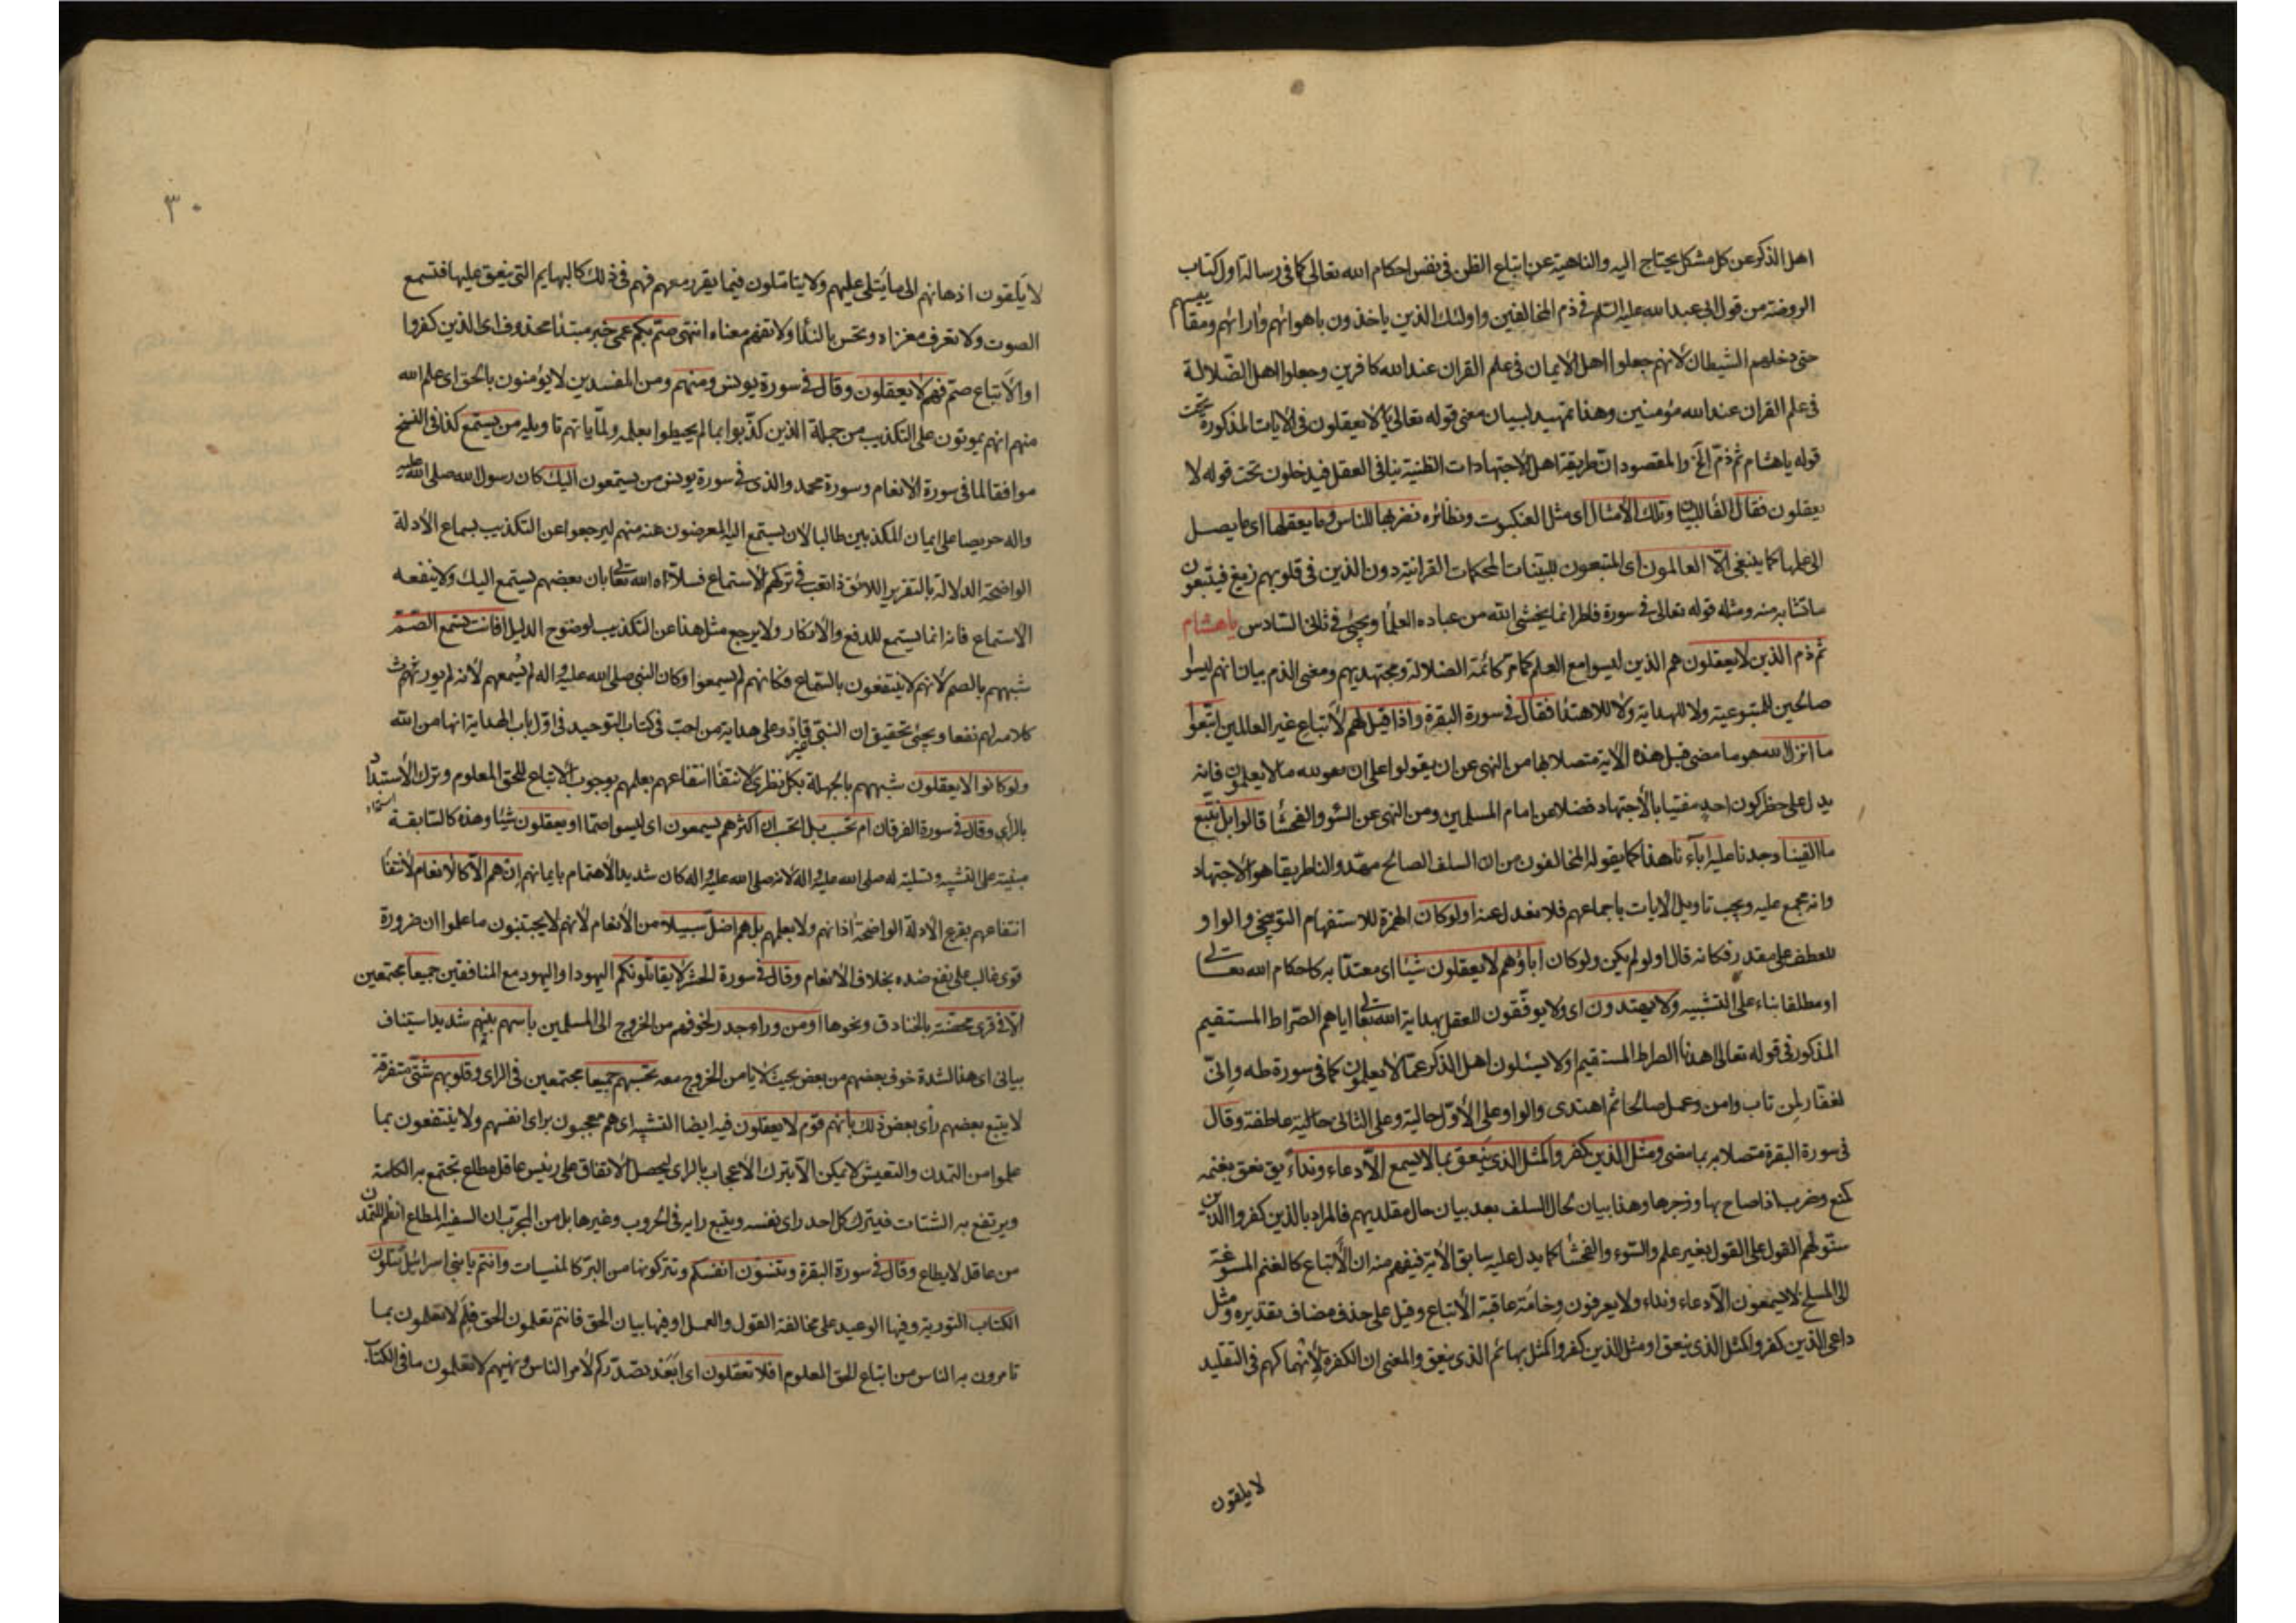 اهل الذكر عن كل مشكل يحتاج اليه والناهية عن اتباع الظن فى نفس احكام الله تعالى كما فى رسالة اول كتاب
الروضة من قول ابى عبد الله عليه السلم فى ذم المخالفين واولئك الذين ياخذون باهوائهم وارائهم ومقاييسهم
حتى دخلهم الشيطان لانهم جعلوا اهل الايمان فى علم القران عند الله كافرين وجعلوا اهل الضّلالة
فى علم القران عند الله مؤمنين وهذا تمهيد لبيان معنى قوله تعالى لا يعقلون فى الايات المذكورة تحت
قوله ياهشام ثم ذمّ الخ والمقصود ان طريقة اهل الاجتهادات الظنية ينافى العقل فيدخلون تحت قوله لا
يعقلون فقال وتلك الامثال اى مثل العنكبوت ونظائره نضربها للناس وما يعقلها اى ما يصل
الى علمها كما ينبغى الّا العالمون اى المتبعون للبينات المحكمات القرانية دون الذين فى قلوبهم زيغ فيتبعون
ما تشابه منه ومثله قوله تعالى فى سورة فاطر انما يخشى الله من عباده العلمآ ويجئ فى ثانى السّادس ياهشام
ثم ذم الذين لا يعقلون هم الذين ليسوا مع العلم كما مرّ كائمة الضلالة ومجتهديهم ومعنى الذم بيان انهم ليسوا
صالحين للمتبوعية ولا للهداية ولا للاهتدآ فقال فى سورة البقرة واذا قيل لهم لاتباع غير العالمين اتبعوا
ما انزل الله هو ما مضى قبل هذه الاية متصلا بها من النهى عن ان يقولوا على الله ما لا يعلمون فانه
يدل على حظر كون احد مفتيا بالاجتهاد فضلا عن امام المسلمين ومن النهى عن السّوء والفحشآ قالوا بل نتّبع
ما الفينا وجدنا عليه ابآءنا هذا كما يقوله المخالفون من ان السلف الصالح مهّدوا لنا طريقا هو الاجتهاد
وانه مجمع عليه ويجب تاويل الايات باجماعهم فلا نعدل عنه اولوكان الهمزة للاستفهام التوبيخى والواو
للعطف على مقدر فكانه قال اولو لم يكن ولو كان اباؤهم لا يعقلون شيئا اى معتدّا به كاحكام الله تعالى
او مطلقا بناء على التشبيه ولا يهتدون اى ولا يوفّقون للعقل بهداية الله تعالى اياهم الصّراط المستقيم
المذكور فى قوله تعالى اهدنا الصراط المستقيم او لا يسئلون اهل الذكر عمّا لا يعلمون كما فى سورة طه وانّى
لغفار لمن تاب وامن وعمل صالحا ثم اهتدى والواو على الاوّل حالية وعلى الثانى حالية عاطفة وقال
فى سورة البقرة متصلا بما مضى ومثل الذين كفروا كمثل الذى ينعق بما لا يسمع الّا دعاء ونداء يق نعق بغنمه
كمنع وضرب اذا صاح بها وزجرها وهذا بيان لحال السلف بعد بيان حال مقلديهم فالمراد بالذين كفروا الذين
سوّلهم القول على القول بغير علم والسّوء والفحشآ كما يدل عليه سابق الاية فيفهم منه ان الاتباع كالغنم المسوقة
الى المسلخ لا يسمعون الّا دعاء ونداء ولا يعرفون وخامة عاقبة الاتباع وقيل على حذف مضاف تقديره ومثل
داعى الذين كفروا كمثل الذى ينعق او مثل الذين كفروا كمثل بهائم الذى ينعق والمعنى ان الكفرة لانهماكهم فى التقليد
لا يلقون
٣٠
لا يلقون اذهانهم الى ما يتلى عليهم ولا يتامّلون فيما يقرر معهم فهم فى ذلك كالبهايم التى ينعق عليها فتسمع
الصوت ولا تعرف مغزاه وتحس بالندآ ولا تفهم معناه انتهى صمّ بكم عمى خبر مبتدآ محذوف اى الذين كفروا
او الاتباع صمّ فهم لا يعقلون وقال فى سورة يونس ومنهم ومن المفسدين لا يؤمنون بالحق اى علم الله
منهم انهم يموتون على التكذيب من جملة الذين كذّبوا بما لم يحيطوا بعلمه ولمّا ياتهم تاويله من يستمع كذا فى النسخ
موافقا لما فى سورة الانعام وسورة محمد والذى فى سورة يونس من يستمعون اليك كان رسول الله صلى الله عليه
واله حريصا على ايمان المكذبين طالبا لان يستمع اليه المعرضون عنه منهم ليرجعوا عن التكذيب بسماع الادلة
الواضحة الدلالة بالتقرير اللائق ذا تعب فى تركهم الاستماع فسلّاه الله تعالى بان بعضهم يستمع اليك ولا ينفعه
الاستماع فانه انما يستمع للدفع والانكار ولا يرجع مثل هذا عن التكذيب لوضوح الدليل افانت تسمع الصّم
شبههم بالصم لانهم لا ينتفعون بالسّماع فكانهم لم يسمعوا وكان النبى صلى الله عليه واله لم يُسمعهم لانه لم يورثهم
كلامه لهم نفعا ويجئ تحقيق ان النبى قادر على هداية من احبّ فى كتاب التوحيد فى اوّل باب الهداية انها من الله
ولو كانوا لا يعقلون شبههم بالجهلة بكل نظرى لانتفآ انتفاعهم بعلمهم بوجوب الاتباع للحق المعلوم وترك الاستبداد
بالراى وقال فى سورة الفرقان ام تحسب بل اتحسب ان اكثرهم يسمعون اى ليسوا صمّا او يعقلون شيئا وهذه كالسّابقة
مبنية على التشبيه وتسلية له صلى الله عليه واله لانه صلى الله عليه واله كان شديد الاهتمام بايمانهم ان هم الّا كالانعام لانتفآ
انتفاعهم بقرع الادلة الواضحة اذانهم ولا بعلمهم بل هم اضلّ سبيلا من الانعام لانهم لا يجتنبون ما علموا ان ضرره
قوى غالب على نفع ضده بخلاف الانعام وقال فى سورة الحشر لا يقاتلونكم اليهود او اليهود مع المنافقين جميعا مجتمعين
الّا فى قرى محصّنة بالخنادق ونحوها او من وراء جدر لخوفهم من الخروج الى المسلمين باسهم بينهم شديد استيناف
بيانى اى هذا لشدة خوف بعضهم من بعض بحيث لا يامن الخروج معه تحسبهم جميعا مجتمعين فى الراى وقلوبهم شتّى متفرقة
لا يتبع بعضهم راى بعض ذلك بانهم قوم لا يعقلون فيه ايضا التشبيه اى هم معجبون براى انفسهم ولا ينتفعون بما
علموا من التمدن والتعيش لا يمكن الّا بترك الاعجاب بالراى ليحصل الاتفاق على رئيس عاقل مطاع تجتمع به الكلمة
ويرتفع به الشتات فيترك كل احد راى نفسه ويتبع رايه فى الحروب وغيرها بل من المجرّب ان السفيه المطاع انظم للتمدن
من عاقل لا يطاع وقال فى سورة البقرة وتنسون انفسكم وتتركونها من البرّ كالمنسيات وانتم يا بنى اسرائيل تتلون
الكتاب التورية وفيها الوعيد على مخالفة القول والعمل او فيها بيان الحق فانتم تعلمون الحق فلم لا تعملون بما
تامرون به الناس من اتباع الحق المعلوم افلا تعقلون اى ابعد تصدّركم لامر الناس ونهيهم لا تعلمون ما فى الكتاب